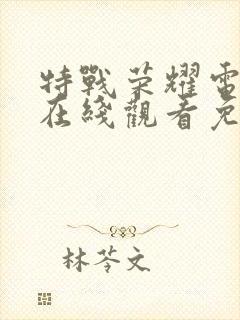 特戰荣耀電
在綫觀看免
林苓文